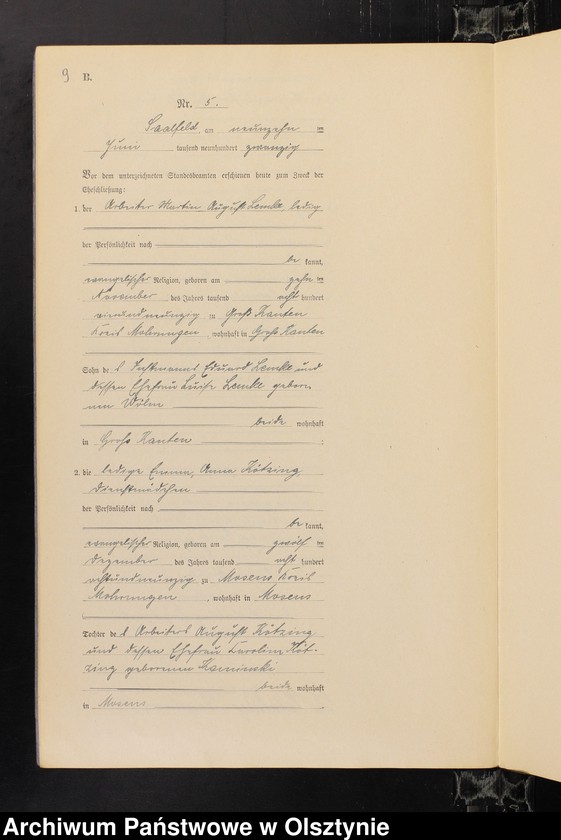 9 B.
Nr. 5.
Saalfeld, am neunzehn ten
Juni tausend neunhundert zwanzig
Vor dem unterzeichneten Standesbeamten erschienen heute zum Zweck der
Eheschließung:
1. der Arbeiter Martin August Lemke, ledig
der Persönlichkeit nach
be kannt,
evangelischer Religion, geboren am zehn ten
November des Jahres tausend acht hundert
vierundneunzig zu Groß Hanten
Kreis Mohrungen, wohnhaft in Groß Hanten
Sohn des Eduard Lemke und
dessen Ehefrau Luise Lemke gebore-
nen Wölm
beide wohnhaft
in Groß Hanten ;
2. die ledige Emma, Anna Kötzing
Dienstmädchen
der Persönlichkeit nach
be kannt,
evangelischer Religion, geboren am zwölf ten
Dezember des Jahres tausend acht hundert
achtundneunzig zu Mosens Kreis
Mohrungen, wohnhaft in Mosens
Tochter des Arbeiters August Kötzing
und dessen Ehefrau Karoline Köt-
zing geborenen Kaminski
beide wohnhaft
in Mosens
Archiwum Państwowe w Olsztynie